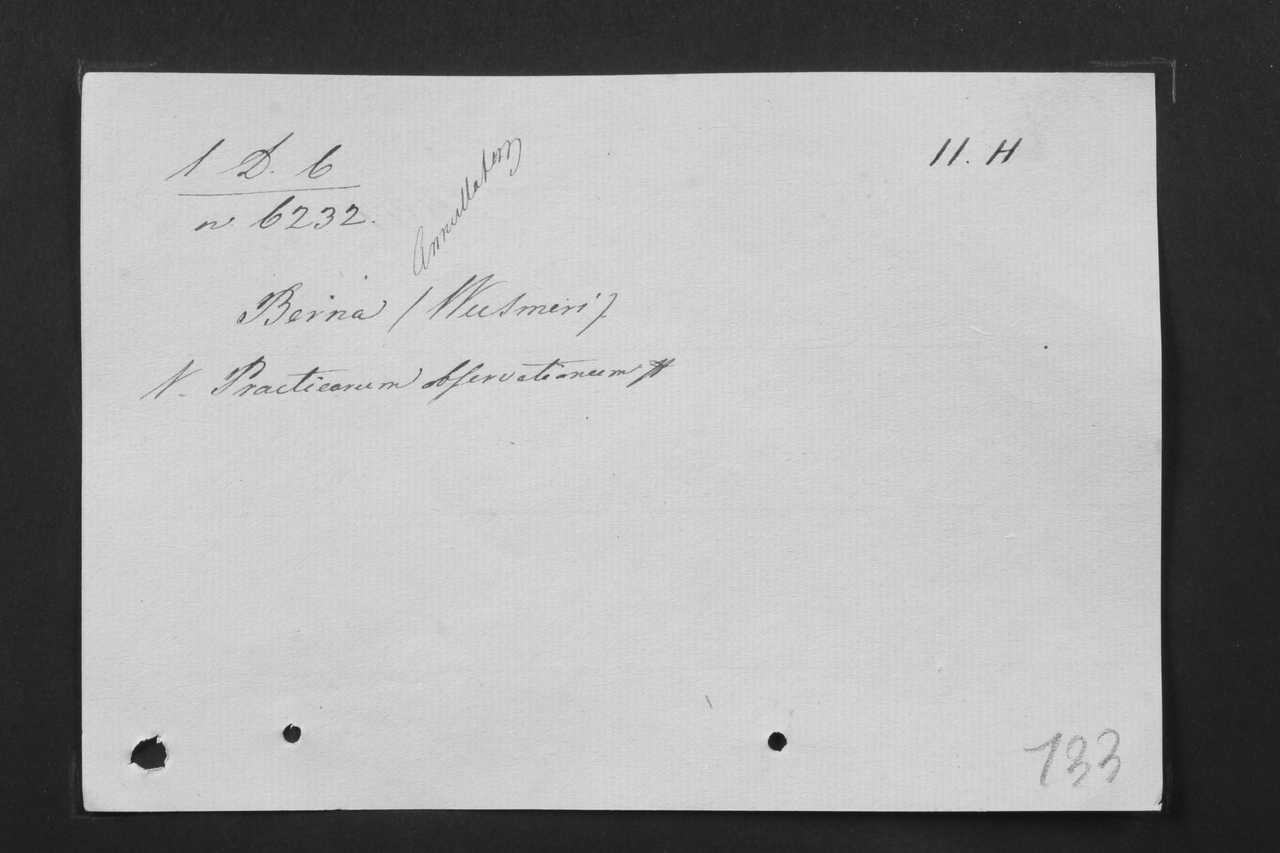 1 D. 6
n. 6232.
Annullatum
11. H
Berna (Wusmeri).
V. Practicarum observationum
133